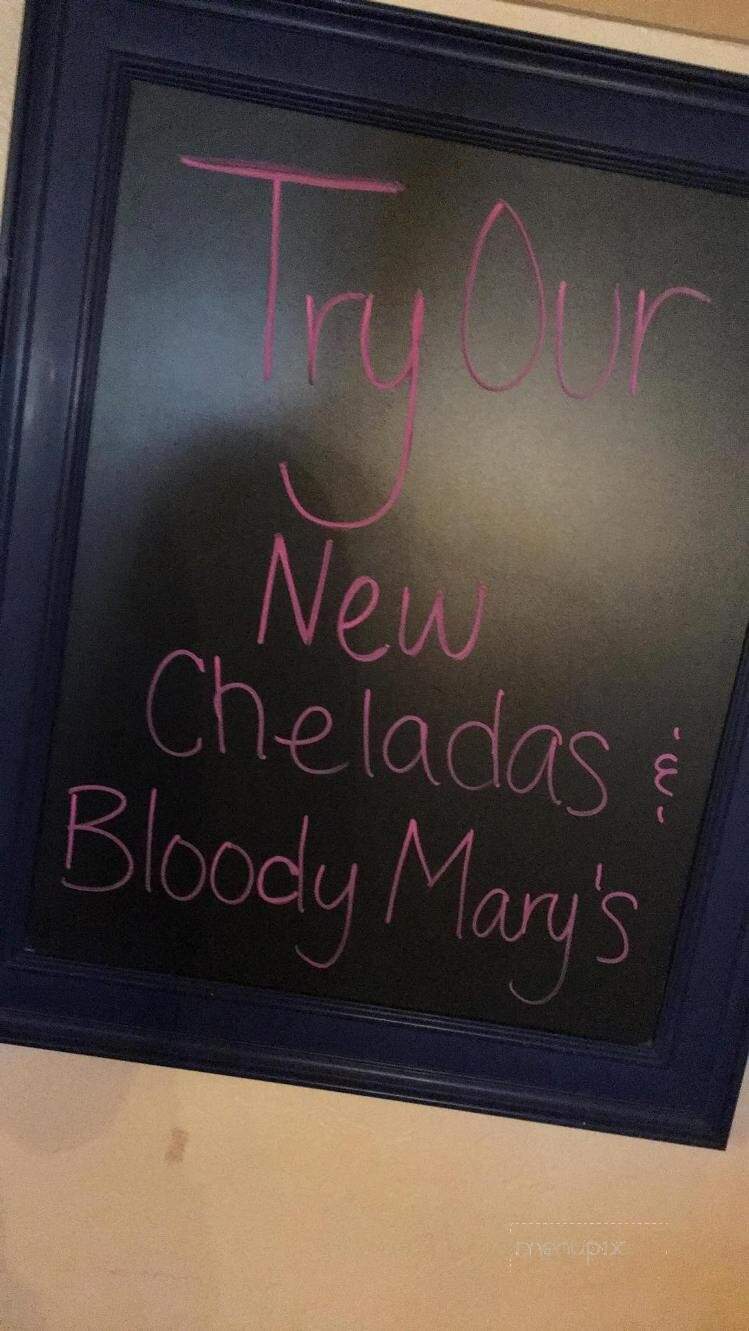 Try Our
New
Cheladas &
Bloody Mary's
menupix